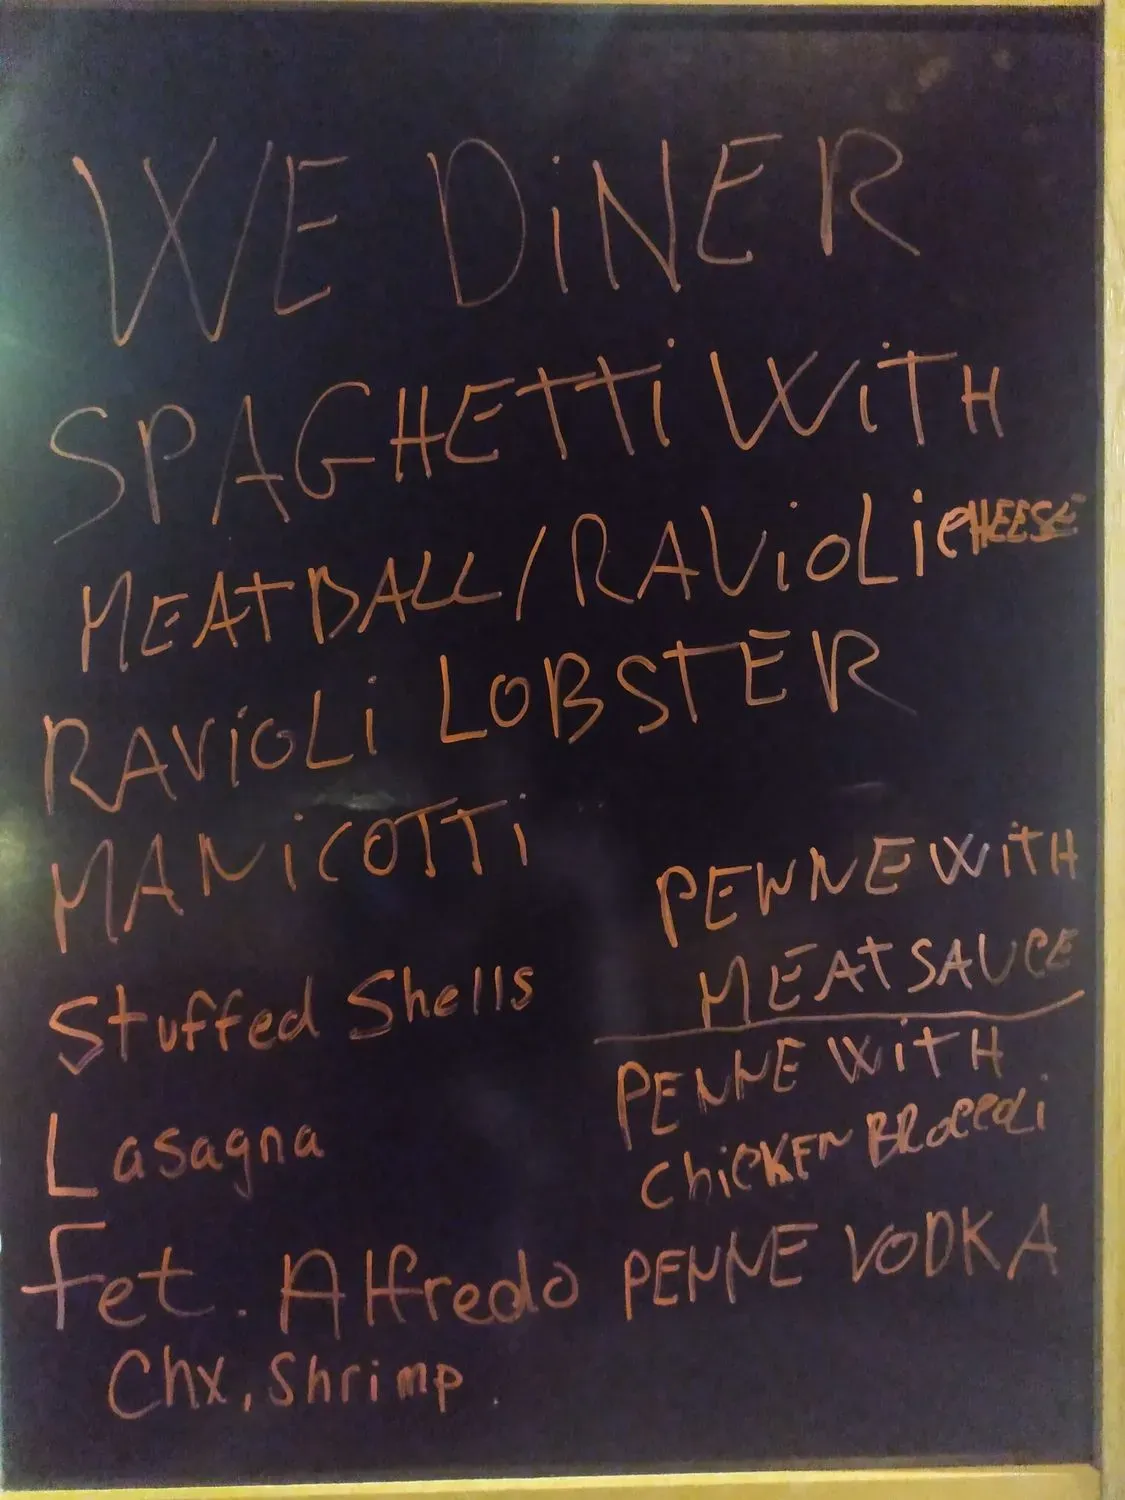 WE DiNER
SPAGHETTi WiTH
MEATBALL/RAViOLi CHEESE
RAViOLi LOBSTER
MANiCOTTi
Stuffed Shells
Lasagna
Fet. Alfredo
Chx, Shrimp.
PENNE WiTH
MEAT SAUCE
PENNE WiTH
ChiCKEN BRoccoLi
PENNE VODKA